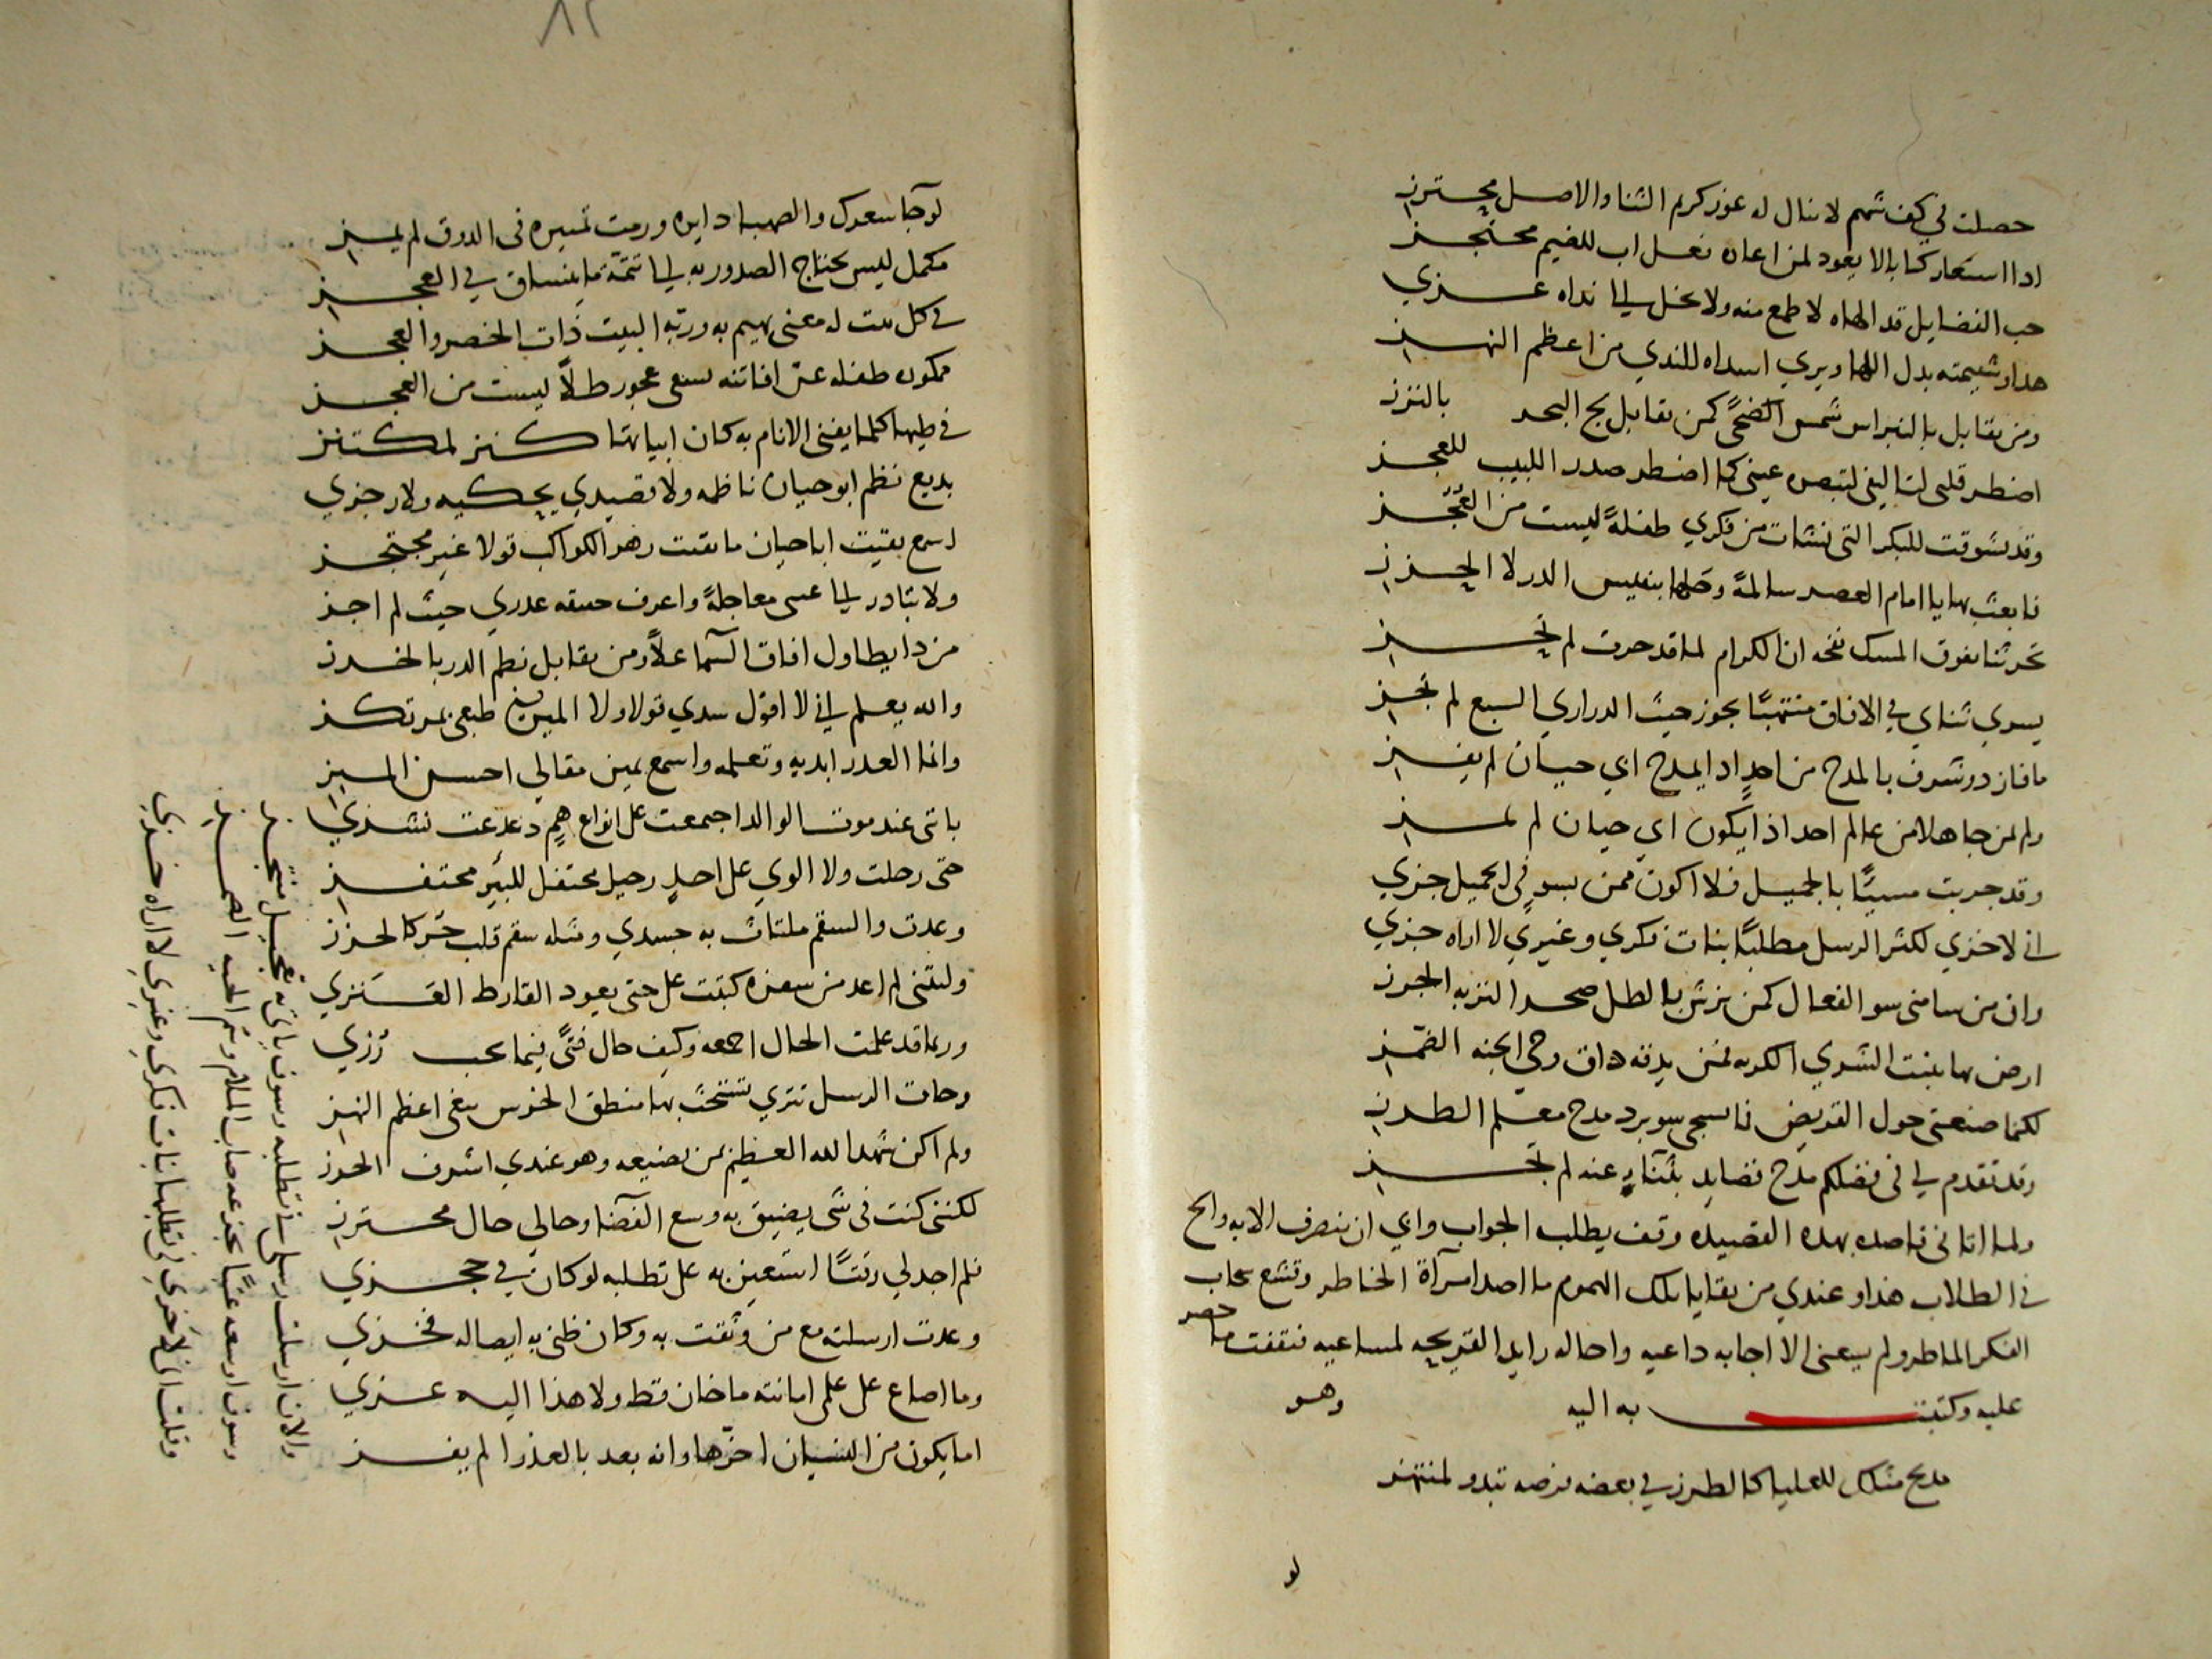 حصلت في كف شهم لا ينال له عوز كريم الثنا والاصل محترز
اذا استعار كتابا لا يعود لمن اعاره فعل اب للضيم محتجز
حب الفضايل قد الهاه لا طمع منه ولا بخل الى نداه عزي
هذا وشيمته بدل اللها ويري اسداه للندي من اعظم النهز
ومن يقابل بالنبراس شمس الضحى كمن يقابل لج البحر بالنزز
اضطر قلبي لتاليفي لتبصره عيني كما اضطر صدر اللبيب للعجز
وقد تشوقت للبكر التي نشات من فكري طفلة ليست من العجز
فابعث بها يا امام العصر سالمة وحلها بنفيس الدر لا الخرز
تحز ثنا يفوق المسك نفحه ان الكرام لما قد حرت لم تحز
يسري ثناي في الافاق منتهبا يجوز حيث الدراري السبع لم تجز
ما فاز ذو شرف بالمدح من احد اذا يمدح ابي حيان لم يفز
ولم لمن جاهلا من عالم احد اذا يكون ابي حيان لم يمز
وقد جربت مسيئا بالجميل فلا اكون ممن بسو في الجميل جزي
اني لاخزي لكثر الرسل مطلبا بنات فكري وغيري لا اراه خزي
وان من سامني سو الفعال كمن يرش بالطل صحر التربه الجرز
ارض بها ينبت الشري الكريه لمن يدقه ذاق وحي الجنه الضمز
لكنما صنعتي حول القريض فانسجي سو برد مدح معلم الطرز
وقد تقدم لي في فضلكم مدح قصايد بثنا عنه لم تجز
ولما اتاني قاصده بهذه القصيده وقف يطلب الجواب وابي ان ينصرف الا به والح
في الطلاب هذا وعندي من بقايا تلك الهموم ما اصدا مرآة الخاطر وقشع سحاب
الفكر الماطر ولم يسعني الا اجابه داعيه واحاله رايد القريحه لمساعيه فثقفت ما حصر
عليه وكتبت به اليه وهو
مدح مثلك للعليا كالطرز في بعضه فرصه تبدو لمنتهز
لو
٨٢
لو جا سعدك والصهبا دايره ورمت تمييزه في الدوق لم يمز
مكمل ليس يحتاج الصدور به الى تتمة ما ينساق في العجز
في كل بيت له معنى يهيم به وربه البيت ذات الخصر والعجز
ممكوره طفله عز افاتنه تسعى عجوز طلا ليست من العجز
في طيها كلما يغني الانام به كان ابياتها كنز لمكتنز
بديع نظم ابو حيان ناظمه ولا قصيدي يحكيه ولا رجزي
اسمع بقيت ابا حيان ما بقيت زهر الكواكب قولا غير محتجز
ولا تبادر الى عتبي معاجلة واعرف حقيقه عذري حيث لم اجز
من ذا يطاول افاق السما علا ومن يقابل نظم الدر بالخرز
والله يعلم اني لا اقول سدي قولا ولا المين في طبعي بمرتكز
وانما العذر ابديه وتعلمه واسمع بميز مقالي احسن الميز
باني عند موت الوالد اجتمعت على انواع هم دعدعت نشزي
حتى رحلت ولا الوي على احد رحيل محتفل للسير محتفز
وعدت والسقم ملتاث به جسدي ومثله سقم قلب حز كالحزز
وليتني لم اعد من سفرة كتبت على حتى يعود القارظ العنزي
وربما قد علمت الحال اجمعه وكيف حال فتى فيما يحب رزي
وجات الرسل تتري تستحث بها منطق الخرس يبغي اعظم النهز
ولم اكن شهد الله العظيم بمن يضيعه وهو عندي اشرف الحرز
لكنني كنت في شي يضيق به وسع الفضا وحالي حال محترز
فلم اجد لي وقتا استعين به على تطلبه لو كان في حجزي
وعدت ارسلته مع من وثقت به وكان ظني به ايصاله فخزي
وما اضاع على علمي امانته ما خان قط ولا هذا اليه عزي
اما يكون من النسيان اخرها وانه بعد بالعذر الم يفز
والان ارسلت رسلي في تطلبه وسوف ياتي به تعجيل منتجز
وسوف اوسعه عتبا يجرعه صاب الملام وسم الحيه
وقلت اني لاخزي في تطلبها بنات فكري وغيري لا اراه خزي